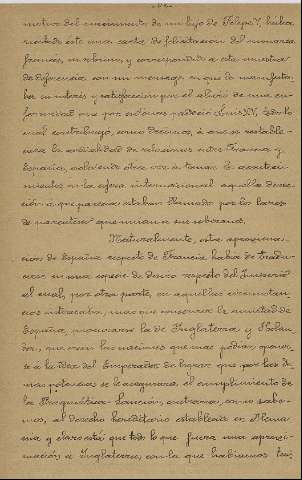 motivo del nacimiento de un hijo de Felipe V, habia
recibido éste una carta de felicitacion del monarca
frances, su sobrino, y correspondido a esta muestra
de deferencia con un mensage en que le manifesta-
ba su interés y satisfaccion por el alivio de una en-
fermedad que por entónces padeció Luis XV, todo lo
cual contribuyó, como decimos, á que se restable-
ciera la cordialidad de relaciones entre Francia y
España, volviendo otra vez á tomar los aconteci-
mientos en la esfera internacional aquella direc-
ción á que parecian estaban llamados por los lazos
de parentesco que unian a sus soberanos.
Naturalmente, esta aproxima-
cion de España respecto de Francia habia de tradu-
cirse en una especie de desvio respecto del Imperio
el cual, por otra parte, en aquellas circunstan-
cias interesaba, mas que conservar la amistad de
España, procurarse la de Inglaterra y Holan-
da, que eran las naciones que mas podian oponer-
se a la idea del Emperador de lograr que por las de-
mas potencias se le asegurara el cumplimiento de
la Pragmática Sancion, contraria, como sabe-
mos, al derecho hereditario establecido en Alema-
nia y claro está que todo lo que fuera una aproxi-
mación á Inglaterra, con la que habiamos